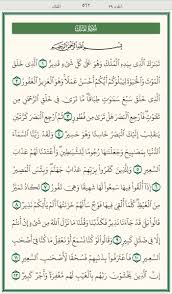 الجزء ٢٩ ٥٦٢ الملك
سُورَةُ المُلْكِ
بِسْمِ اللَّهِ الرَّحْمَٰنِ الرَّحِيمِ
تَبَٰرَكَ الَّذِي بِيَدِهِ الْمُلْكُ وَهُوَ عَلَىٰ كُلِّ شَيْءٍ قَدِيرٌ ١ الَّذِي خَلَقَ
الْمَوْتَ وَالْحَيَوٰةَ لِيَبْلُوَكُمْ أَيُّكُمْ أَحْسَنُ عَمَلًا وَهُوَ الْعَزِيزُ الْغَفُورُ ٢ الَّذِي
خَلَقَ سَبْعَ سَمَٰوَٰتٍ طِبَاقًا مَّا تَرَىٰ فِي خَلْقِ الرَّحْمَٰنِ مِن
تَفَٰوُتٍ فَارْجِعِ الْبَصَرَ هَلْ تَرَىٰ مِن فُطُورٍ ٣ ثُمَّ ارْجِعِ الْبَصَرَ كَرَّتَيْنِ
يَنقَلِبْ إِلَيْكَ الْبَصَرُ خَاسِئًا وَهُوَ حَسِيرٌ ٤ وَلَقَدْ زَيَّنَّا السَّمَاءَ
الدُّنْيَا بِمَصَٰبِيحَ وَجَعَلْنَٰهَا رُجُومًا لِّلشَّيَٰطِينِ وَأَعْتَدْنَا لَهُمْ عَذَابَ
السَّعِيرِ ٥ وَلِلَّذِينَ كَفَرُوا بِرَبِّهِمْ عَذَابُ جَهَنَّمَ وَبِئْسَ الْمَصِيرُ
٦ إِذَا أُلْقُوا فِيهَا سَمِعُوا لَهَا شَهِيقًا وَهِيَ تَفُورُ ٧ تَكَادُ تَمَيَّزُ
مِنَ الْغَيْظِ كُلَّمَا أُلْقِيَ فِيهَا فَوْجٌ سَأَلَهُمْ خَزَنَتُهَا أَلَمْ يَأْتِكُمْ نَذِيرٌ ٨
قَالُوا بَلَىٰ قَدْ جَاءَنَا نَذِيرٌ فَكَذَّبْنَا وَقُلْنَا مَا نَزَّلَ اللَّهُ مِن شَيْءٍ إِنْ أَنتُمْ
إِلَّا فِي ضَلَٰلٍ كَبِيرٍ ٩ وَقَالُوا لَوْ كُنَّا نَسْمَعُ أَوْ نَعْقِلُ مَا كُنَّا فِي أَصْحَٰبِ
السَّعِيرِ ١٠ فَاعْتَرَفُوا بِذَنبِهِمْ فَسُحْقًا لِّأَصْحَٰبِ السَّعِيرِ ١١
إِنَّ الَّذِينَ يَخْشَوْنَ رَبَّهُم بِالْغَيْبِ لَهُم مَّغْفِرَةٌ وَأَجْرٌ كَبِيرٌ ١٢